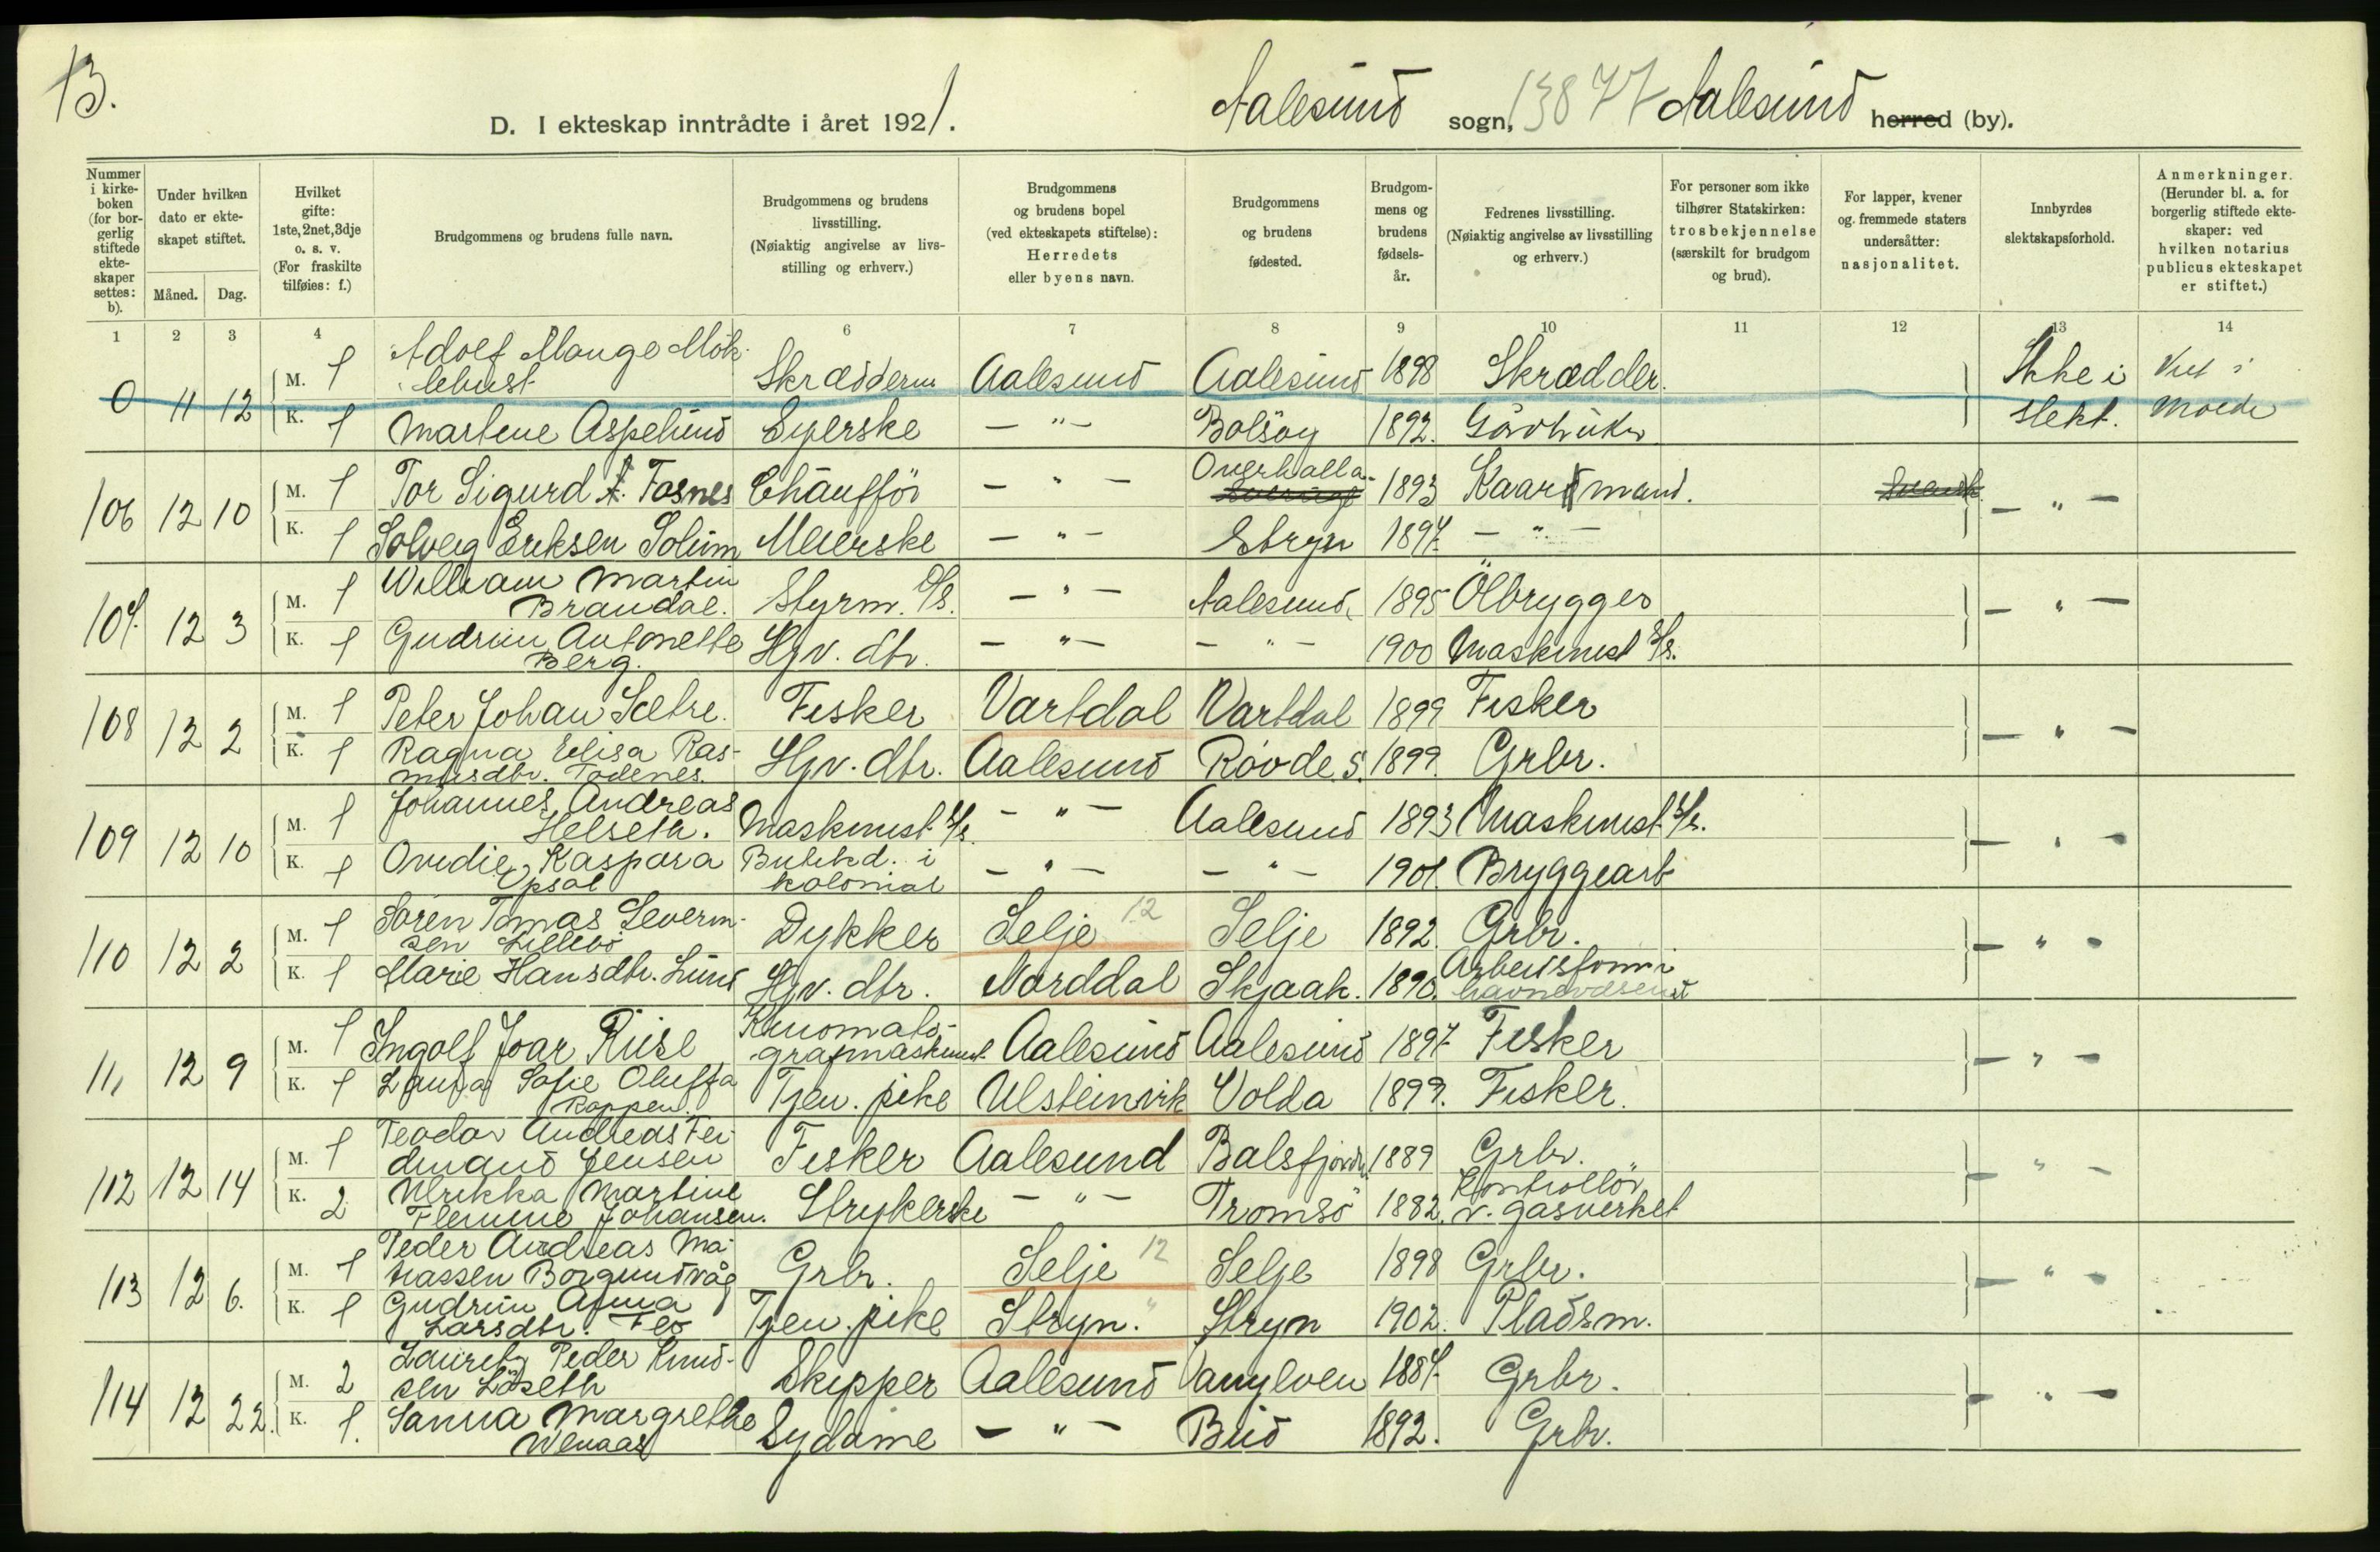 13.
D. I ekteskap inntrådte i året 1921.
Aalesund sogn, 13877 Aalesund herred (by).
Nummer i kirkeboken (for borgerlig stiftede ekteskaper settes: b).
Under hvilken dato er ekteskapet stiftet.
Måned. Dag.
Hvilket gifte: 1ste, 2net, 3dje o. s. v. (For fraskilte tilføies: f.)
Brudgommens og brudens fulle navn.
Brudgommens og brudens livsstilling. (Nøiaktig angivelse av livsstilling og erhverv.)
Brudgommens og brudens bopel (ved ekteskapets stiftelse): Herredets eller byens navn.
Brudgommens og brudens fødested.
Brudgommens og brudens fødselsår.
Fedrenes livsstilling. (Nøiaktig angivelse av livsstilling og erhverv.)
For personer som ikke tilhører Statskirken: trosbekjennelse (særskilt for brudgom og brud).
For lapper, kvener og fremmede staters undersåtter: nasjonalitet.
Innbyrdes slektskapsforhold.
Anmerkninger. (Herunder bl. a. for borgerlig stiftede ekteskaper: ved hvilken notarius publicus ekteskapet er stiftet.)
1 2 3 4 6 7 8 9 10 11 12 13 14
0 11 12 M. 1 Adolf Mauge Møklebust Skrædderm Aalesund Aalesund 1898 Skrædder. Ikke i slekt. Viet i Molde
K. 1 Martine Aspelund Syerske — " — Bolsøy 1892. Gårdbruker
106 12 10 M. 1 Tor Sigurd A. Fosnes Chauffør — " — Overhalla 1893 Kaarmand. Svensk — " —
K. 1 Solveig Eriksen Solum Meierske — " — Stryn 1897. — " —
107. 12 3 M. 1 William Martin Brandal. Styrm. D/S. — " — Aalesund. 1895 Ölbrygger — " —
K. 1 Gudrun Antonette Berg. Hjv. dtr. — " — — " — 1900 Maskinist D/S.
108 12 2 M. 1 Peter Johan Sætre. Fisker Vartdal Vartdal 1899 Fisker — " —
K. 1 Ragna Elisa Rasmusdtr. Todenes. Hjv. dtr. Aalesund Røvde S. 1899. Grbr.
109 12 10 M. 1 Johannes Andreas Helseth. Maskinist D/S. — " — Aalesund 1893 Maskinist D/S. — " —
K. 1 Ovedie Kaspara Opsal Butikkd. i kolonial — " — — " — 1901. Bryggearb
110 12 2 M. 1 Søren Tomas Severinsen Lillebø Dykker Selje 12 Selje 1892. Grbr. — " —
K. 1 Marie Hansdtr. Lund Hjv. dtr. Norddal Skjaak. 1890. Arbeidsform i havnevæsenet
111 12 9 M. 1 Ingolf Joar Riise Kinomatografmaskinist Aalesund Aalesund 1897 Fisker — " —
K. 1 Laura Sofie Oluffa Koppen. Tjen. pike Ulsteinvik Volda 1899. Fisker.
112 12 14 M. 1 Teodor Andreas Ferdinand Jensen Fisker Aalesund Balsfjorden 1889 Grbr. — " —
K. 2 Ulrikka Martine Flemine Johansen. Strykerske — " — Tromsø 1882. Kontrollør v. gasverket
113 12 6. M. 1 Peder Andreas Matiassen Borgundvåg Grbr. Selje 12 Selje 1898 Grbr. — " —
K. 1 Gudrun Anna Larsdtr. Flo Tjen. pike Stryn. " Stryn 1902. Pladsm.
114 12 22. M. 2 Lauritz Peder Knudsen Løseth Skipper Aalesund Vanylven 1887. Grbr. — " —
K. 1. Sanna Margrethe Wenaas Sydame — " — Bud 1892. Grbr.